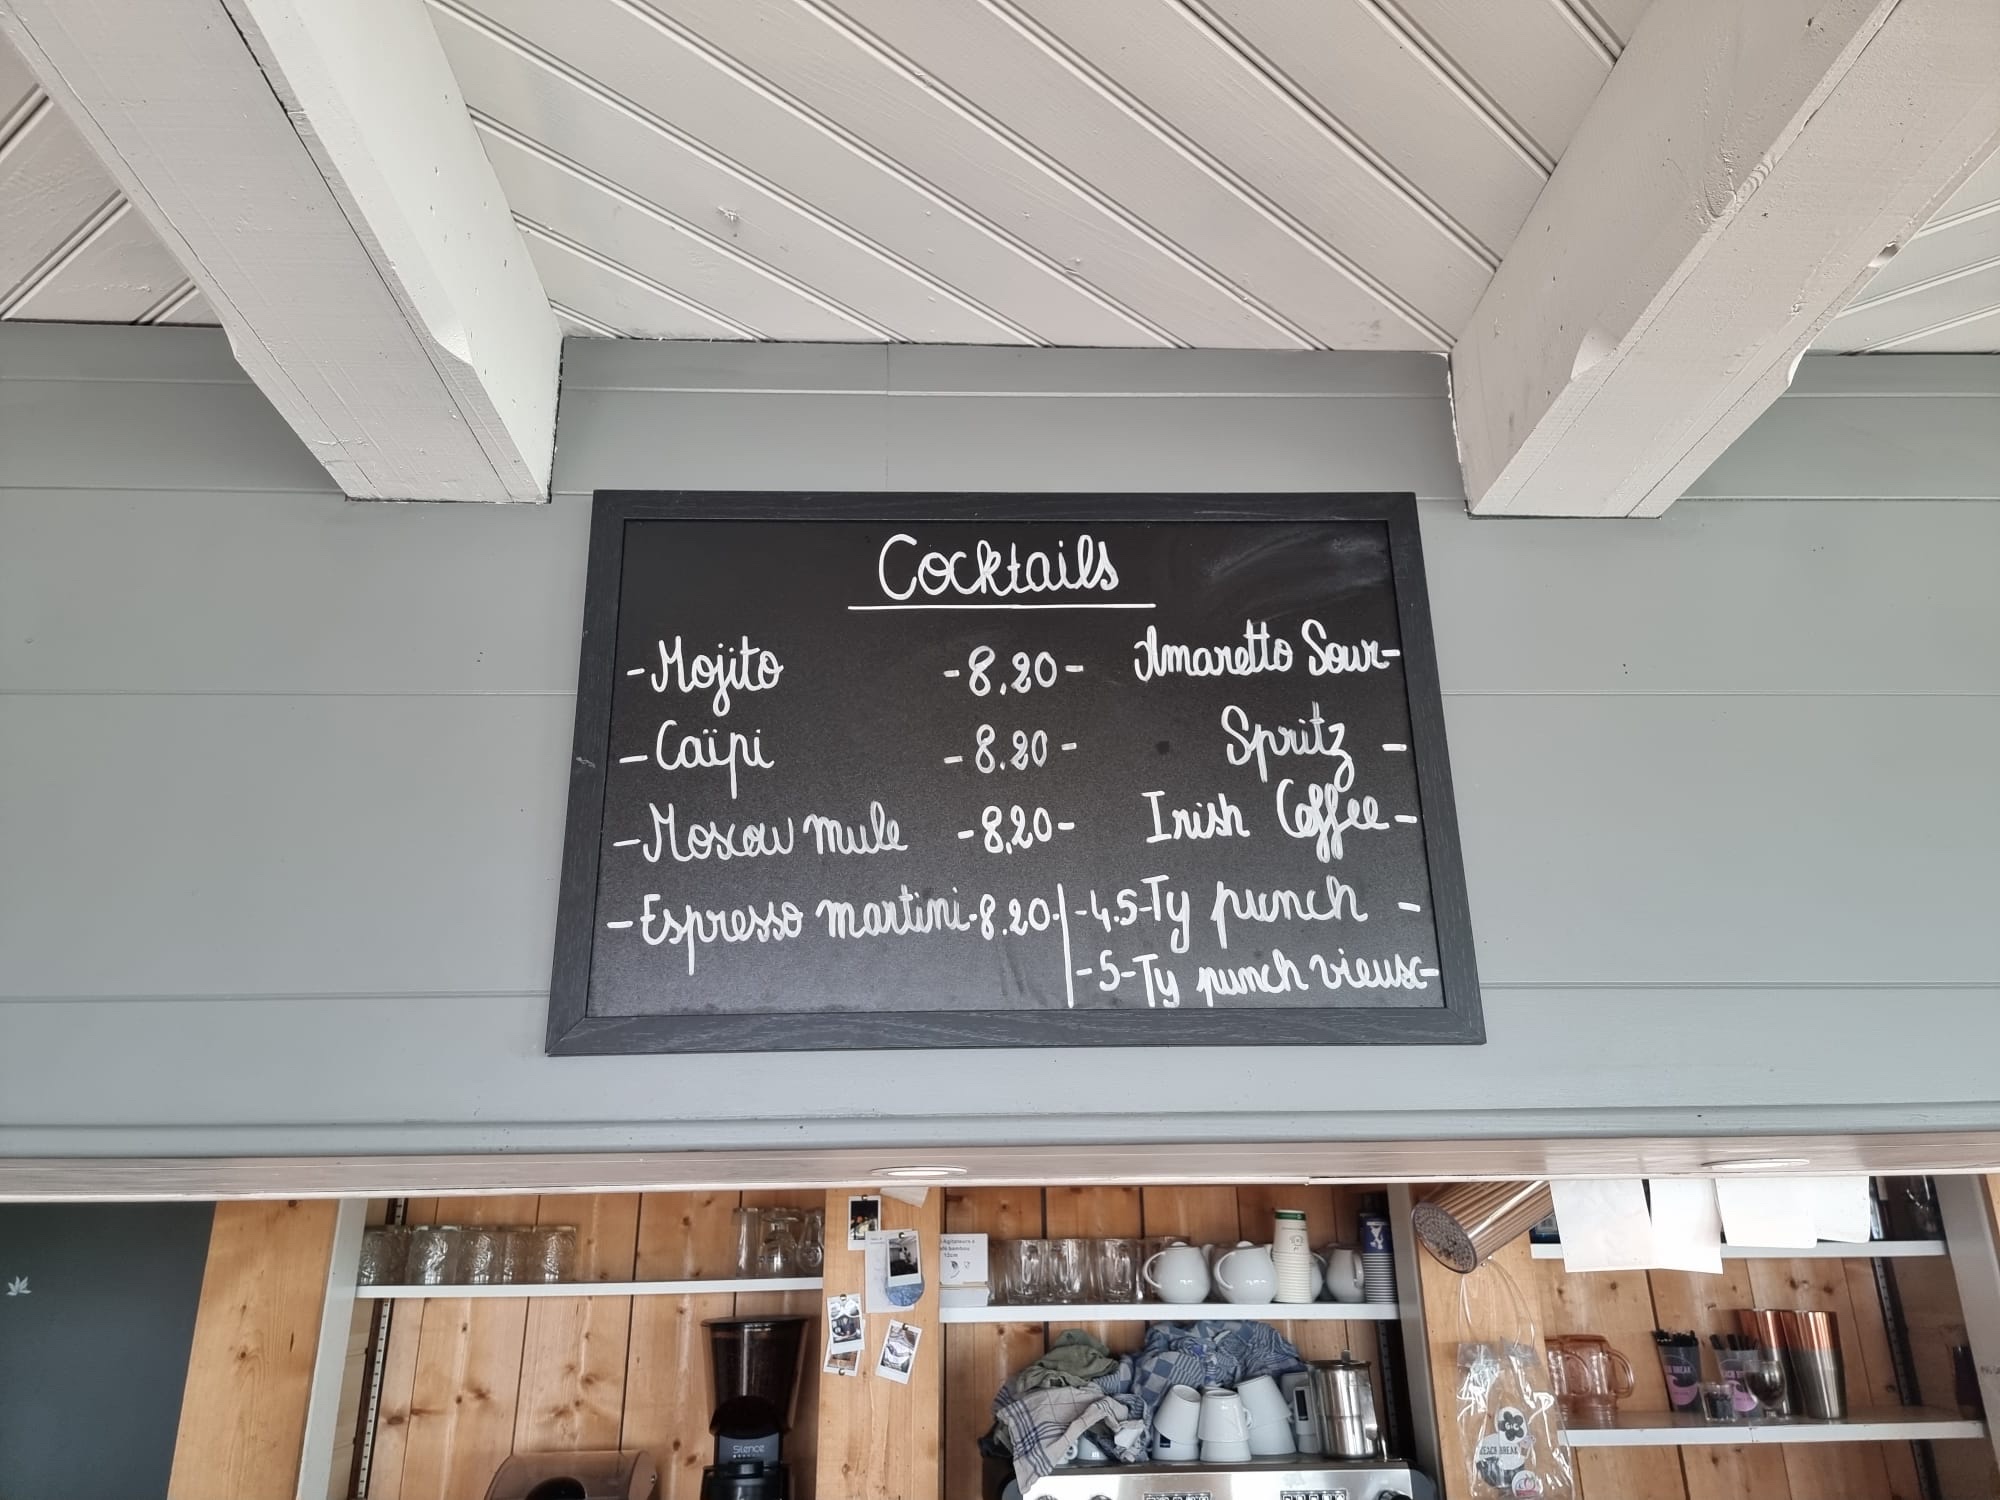 Cocktails
- Mojito - 8,20 - Amaretto Sour -
- Caïpi - 8.20 - Spritz -
- Moscow mule - 8,20 - Irish Coffee -
- Espresso martini - 8.20 - | - 4.5 - Ty punch -
| - 5 - Ty punch vieux -
Agitateurs à
bambou
12cm
Silence
BEACH BREAK